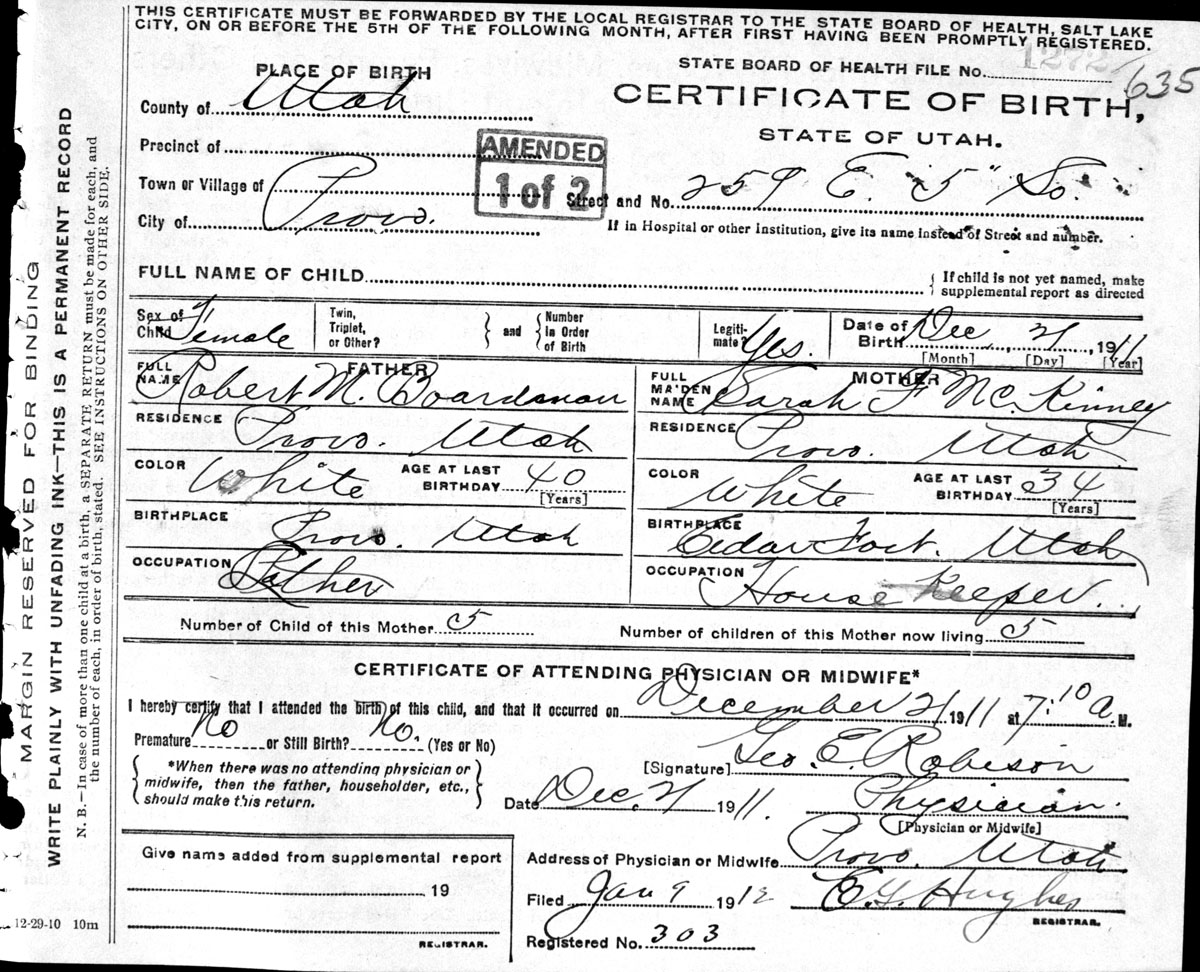 THIS CERTIFICATE MUST BE FORWARDED BY THE LOCAL REGISTRAR TO THE STATE BOARD OF HEALTH, SALT LAKE
CITY, ON OR BEFORE THE 5TH OF THE FOLLOWING MONTH, AFTER FIRST HAVING BEEN PROMPTLY REGISTERED.
MARGIN RESERVED FOR BINDING
WRITE PLAINLY WITH UNFADING INK—THIS IS A PERMANENT RECORD
N. B.—In case of more than one child at a birth, a SEPARATE RETURN must be made for each, and
the number of each, in order of birth, stated. SEE INSTRUCTIONS ON OTHER SIDE.
PLACE OF BIRTH
STATE BOARD OF HEALTH FILE No. 1272 635
County of Utah
CERTIFICATE OF BIRTH,
STATE OF UTAH.
Precinct of
AMENDED
1 of 2
Town or Village of
Street and No. 259 E. 5" So.
City of Provo.
If in Hospital or other Institution, give its name instead of Street and number.
FULL NAME OF CHILD
{ If child is not yet named, make
supplemental report as directed
Sex of Child Female
Twin, Triplet, or Other? } and { Number In Order of Birth
Legitimate? Yes.
Date of Birth Dec 21, 1911
[Month] [Day] [Year]
FATHER
FULL NAME Robert M. Boardman
RESIDENCE Provo. Utah
COLOR White AGE AT LAST BIRTHDAY 40
[Years]
BIRTHPLACE Provo. Utah
OCCUPATION
MOTHER
FULL MAIDEN NAME Sarah F McKinney
RESIDENCE Provo. Utah
COLOR White AGE AT LAST BIRTHDAY 34
[Years]
BIRTHPLACE Cedar Fort. Utah
OCCUPATION House Keeper.
Number of Child of this Mother 5 Number of children of this Mother now living 5
CERTIFICATE OF ATTENDING PHYSICIAN OR MIDWIFE*
I hereby certify that I attended the birth of this child, and that it occurred on December 21 1911 at 7:10 a. M.
Premature No or Still Birth? No. (Yes or No)
{ *When there was no attending physician or
midwife, then the father, householder, etc.,
should make this return. }
[Signature] Geo. E. Robison
Date Dec. 21 1911. Physician.
[Physician or Midwife]
Give name added from supplemental report
19
REGISTRAR.
Address of Physician or Midwife Provo. Utah
Filed Jan 9 1912 Hughes
REGISTRAR.
Registered No. 303
12-29-10 10m